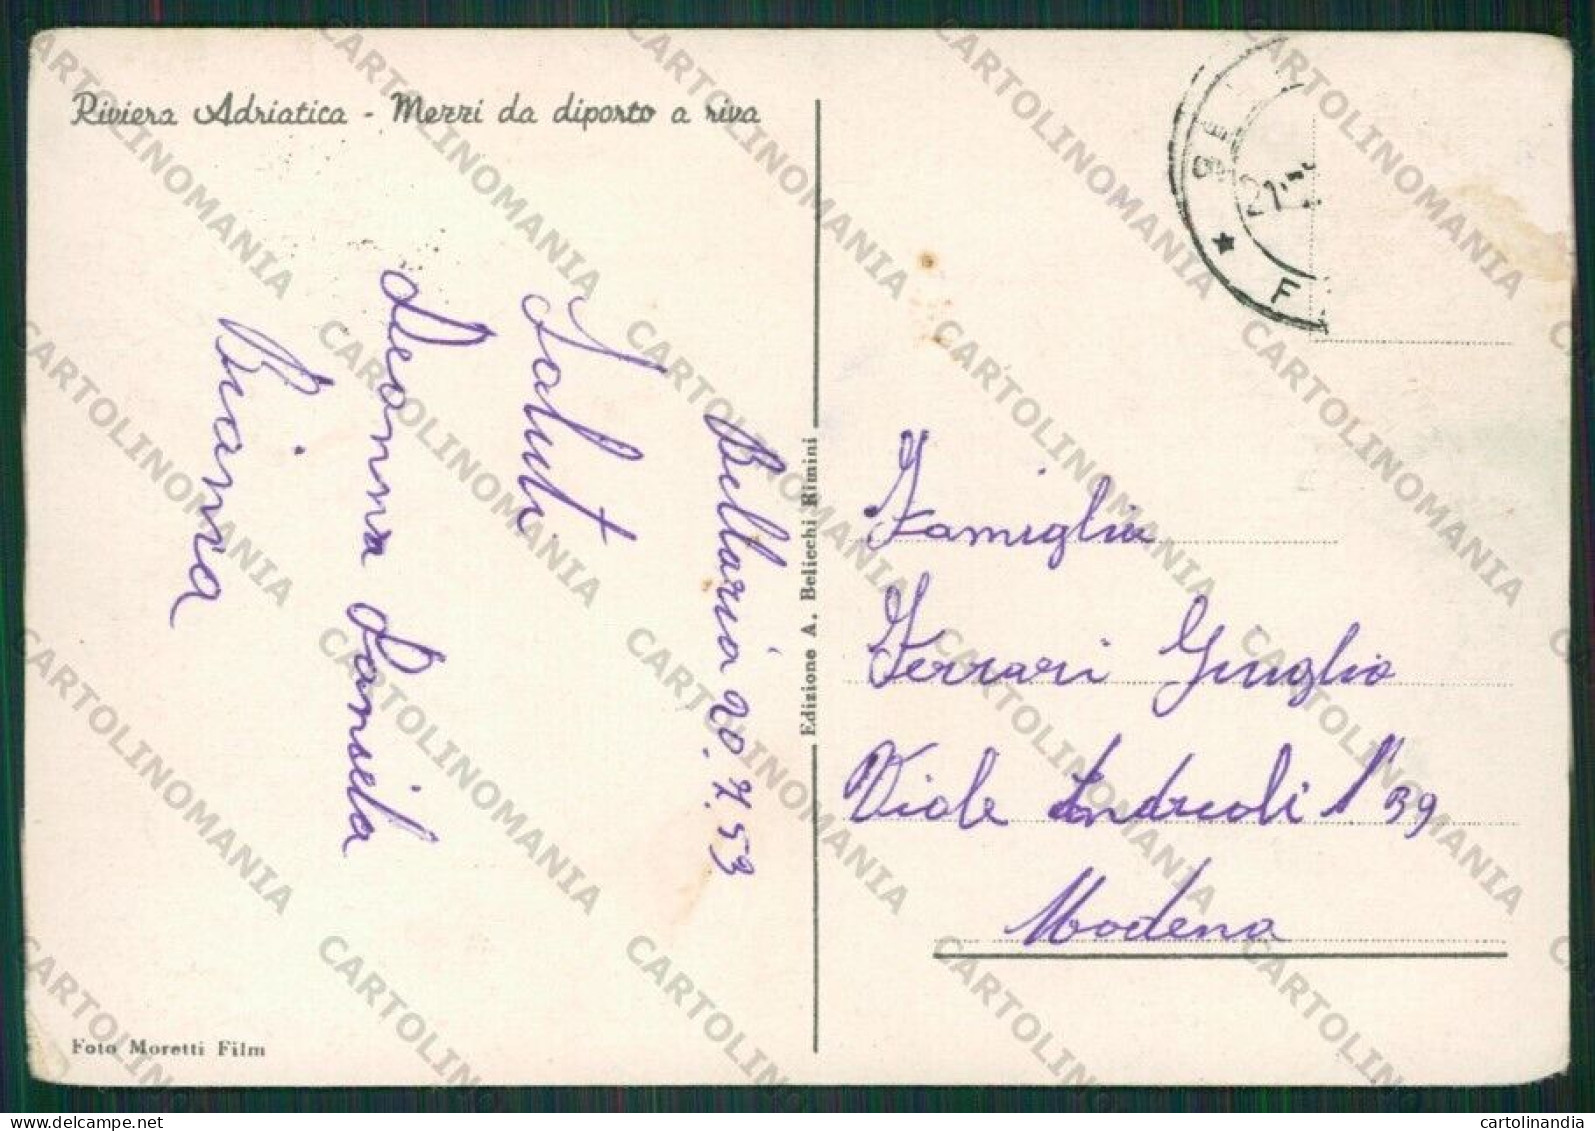 Riviera Adriatica - Mezzi da diporto a riva
Bellaria 20.7.53
Saluti
Leonna Daniela
Biaina
Edizione A. Beliechi Rimini
BE
21.7.
F
Famiglia
Ferrari Guglio
Viale Andreoli 1'39
Modena
Foto Moretti Film
CARTOLINOMANIA
cartolinandia